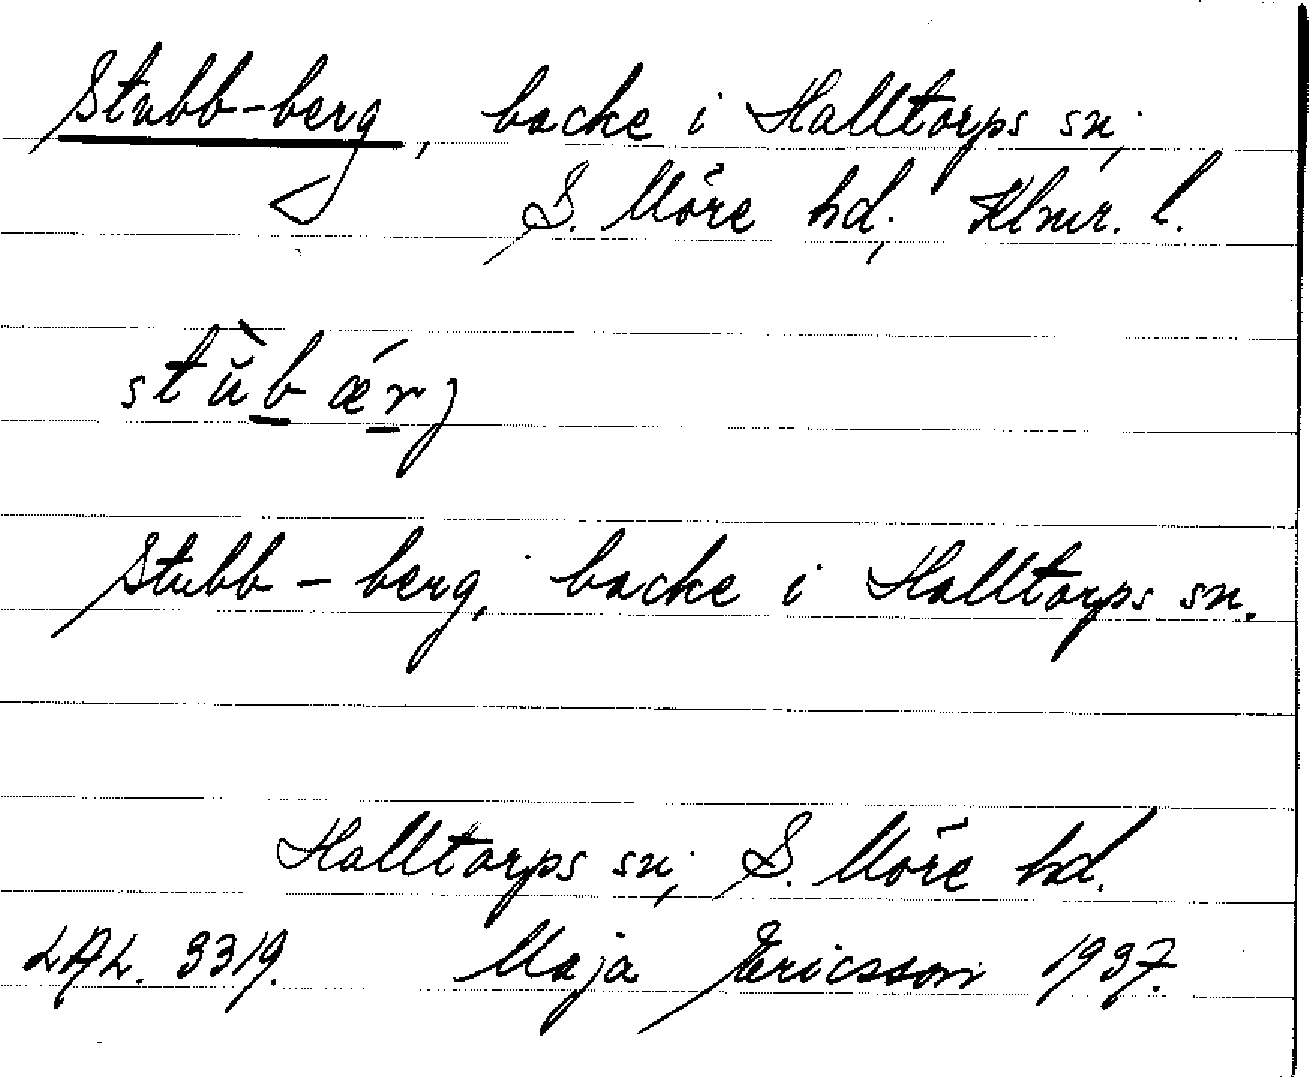 Stubb-berg, backe i Halltorps sn;
S. Möre hd; Klmr. l.
stŭ̀bǽrj
Stubb-berg; backe i Halltorps sn.
Halltorps sn; S. Möre hd.
LAL. 3319. Maja Ericsson 1937.